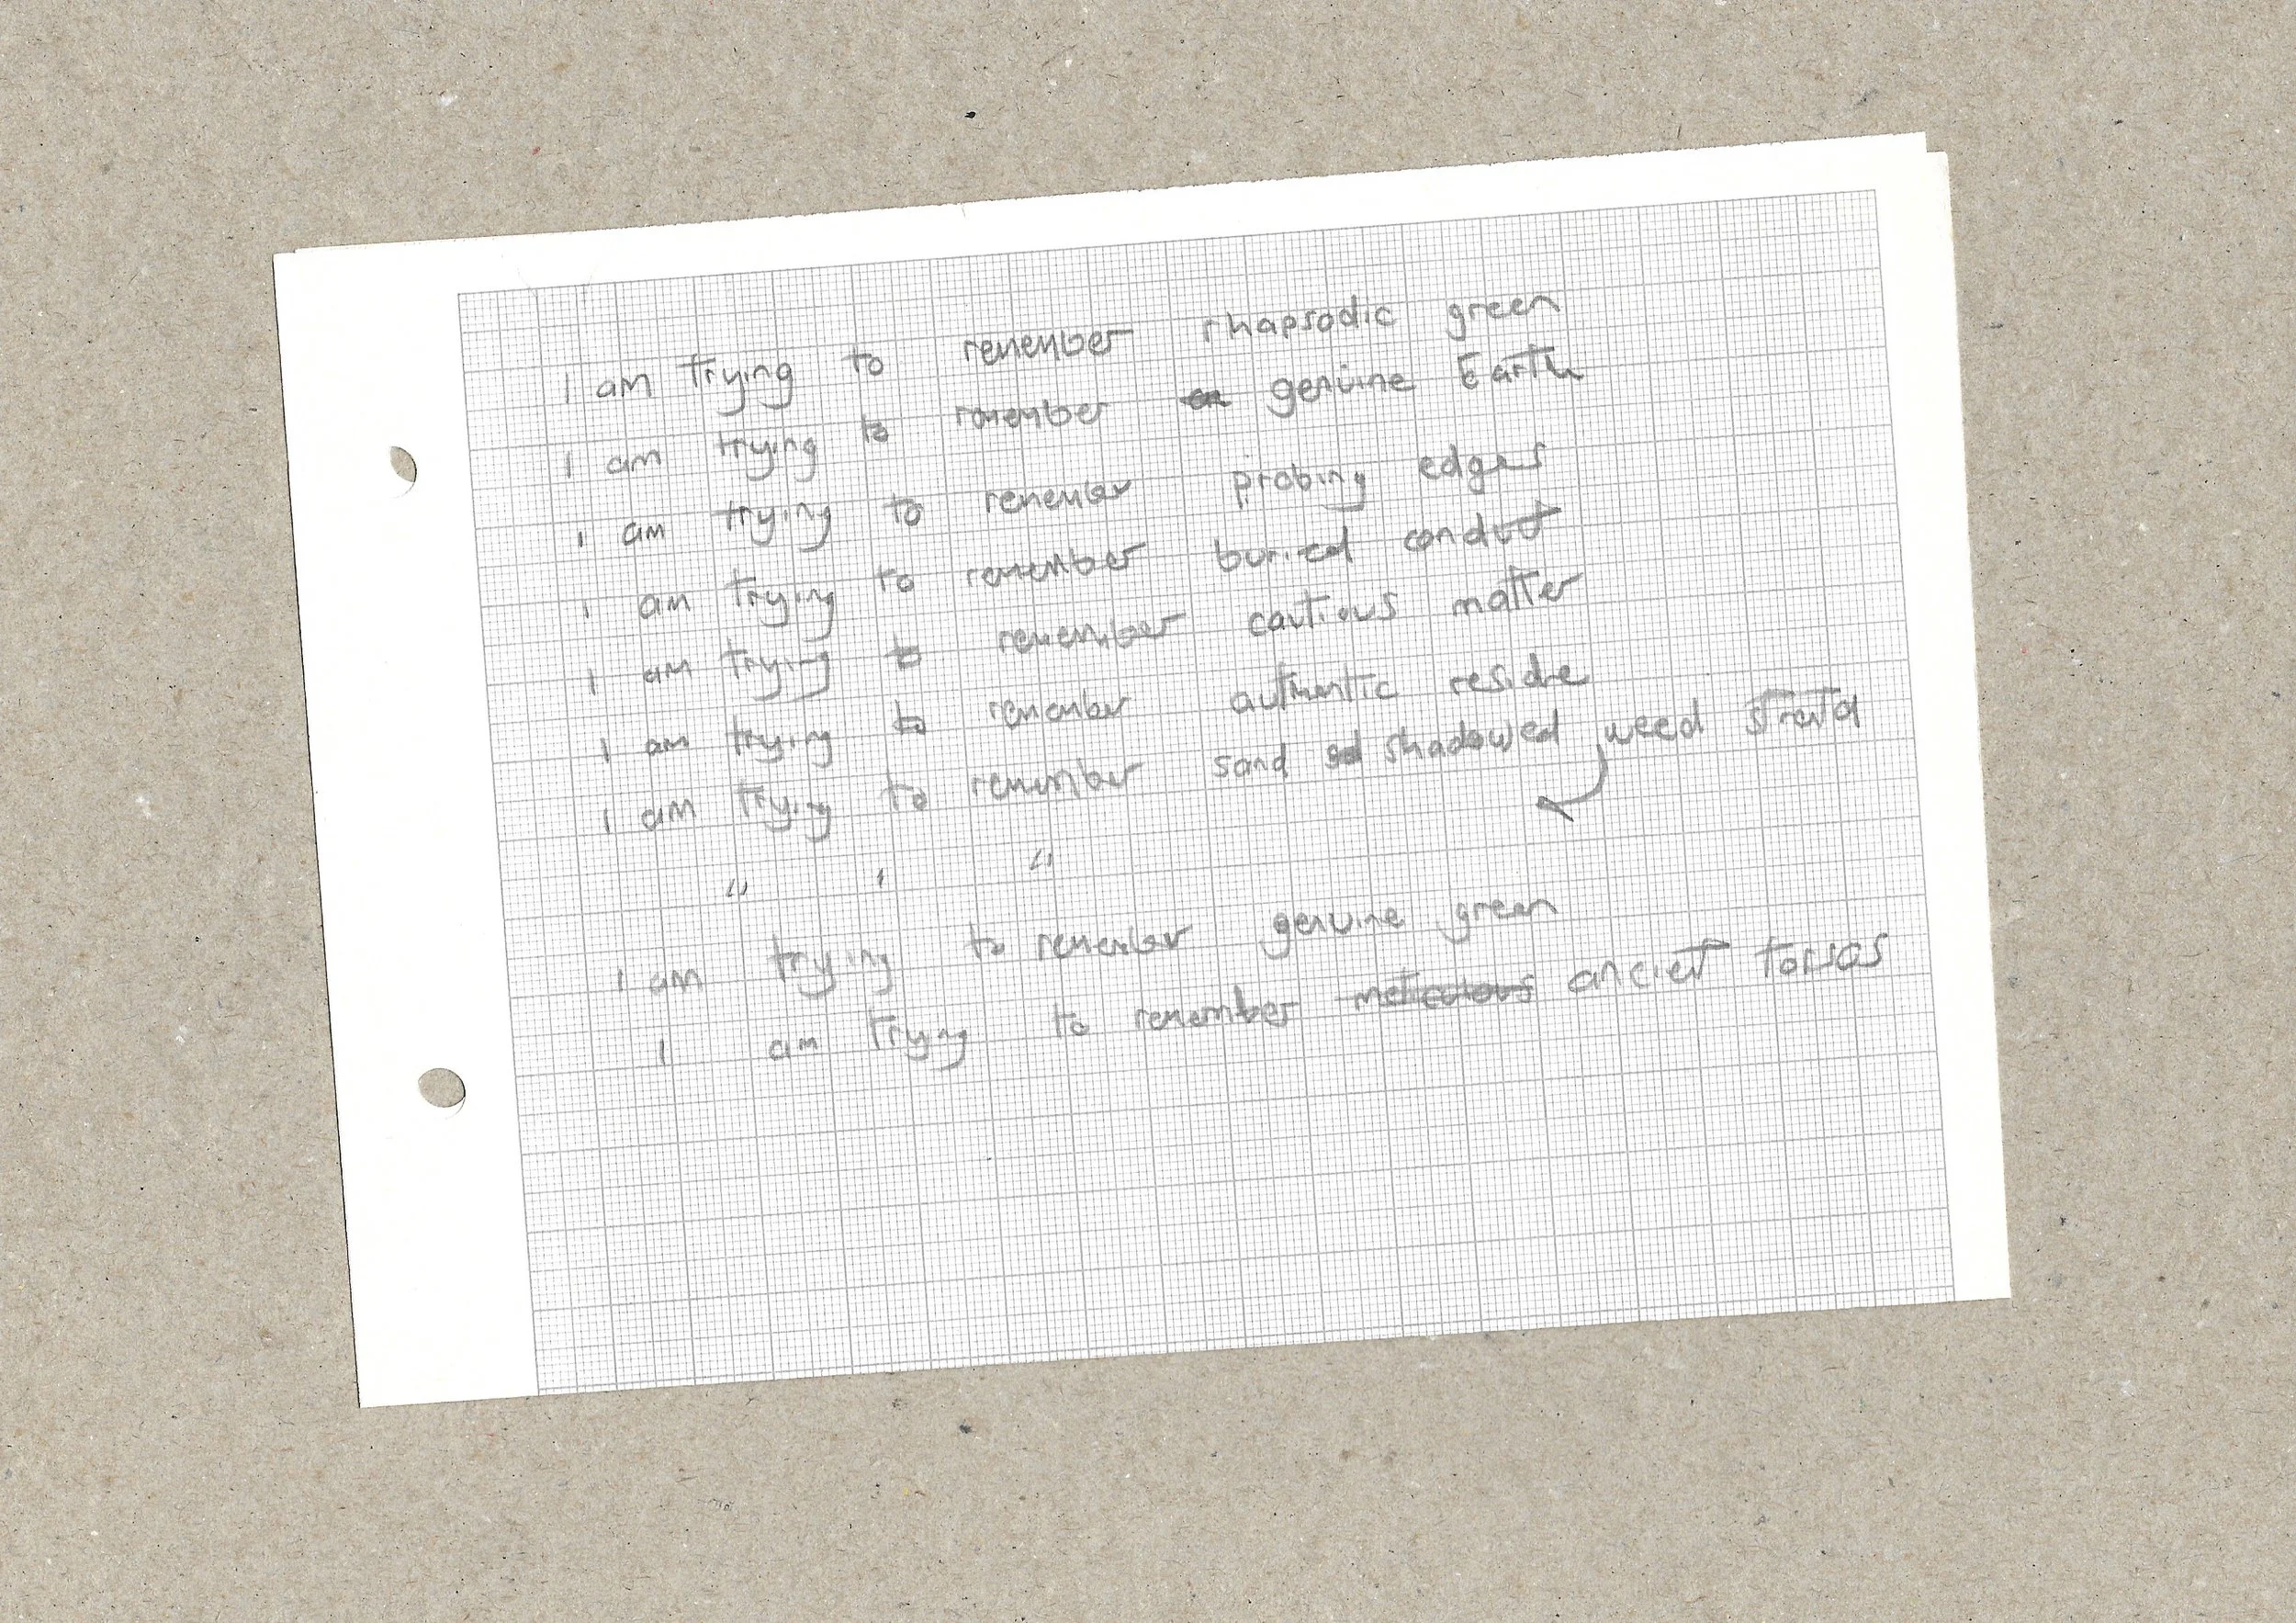 I am trying to remember rhapsodic green
I am trying to remember genuine Earth
I am trying to remember probing edges
I am trying to remember buried conduct
I am trying to remember cautious matter
I am trying to remember authentic residue
I am trying to remember sand shadowed weed strata
" " "
I am trying to remember genuine green
I am trying to remember meticulous ancient torsos